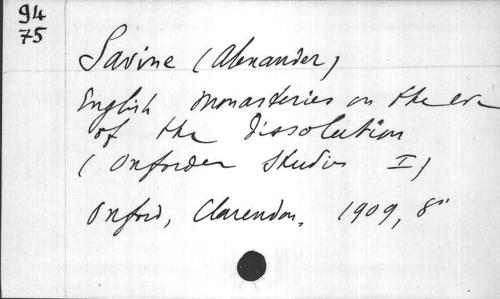 94
75
Savine (Alexander)
English monasteries on the eve
of the dissolution
(Oxforder Studies I)
Oxford, Clarendon, 1909, 8°